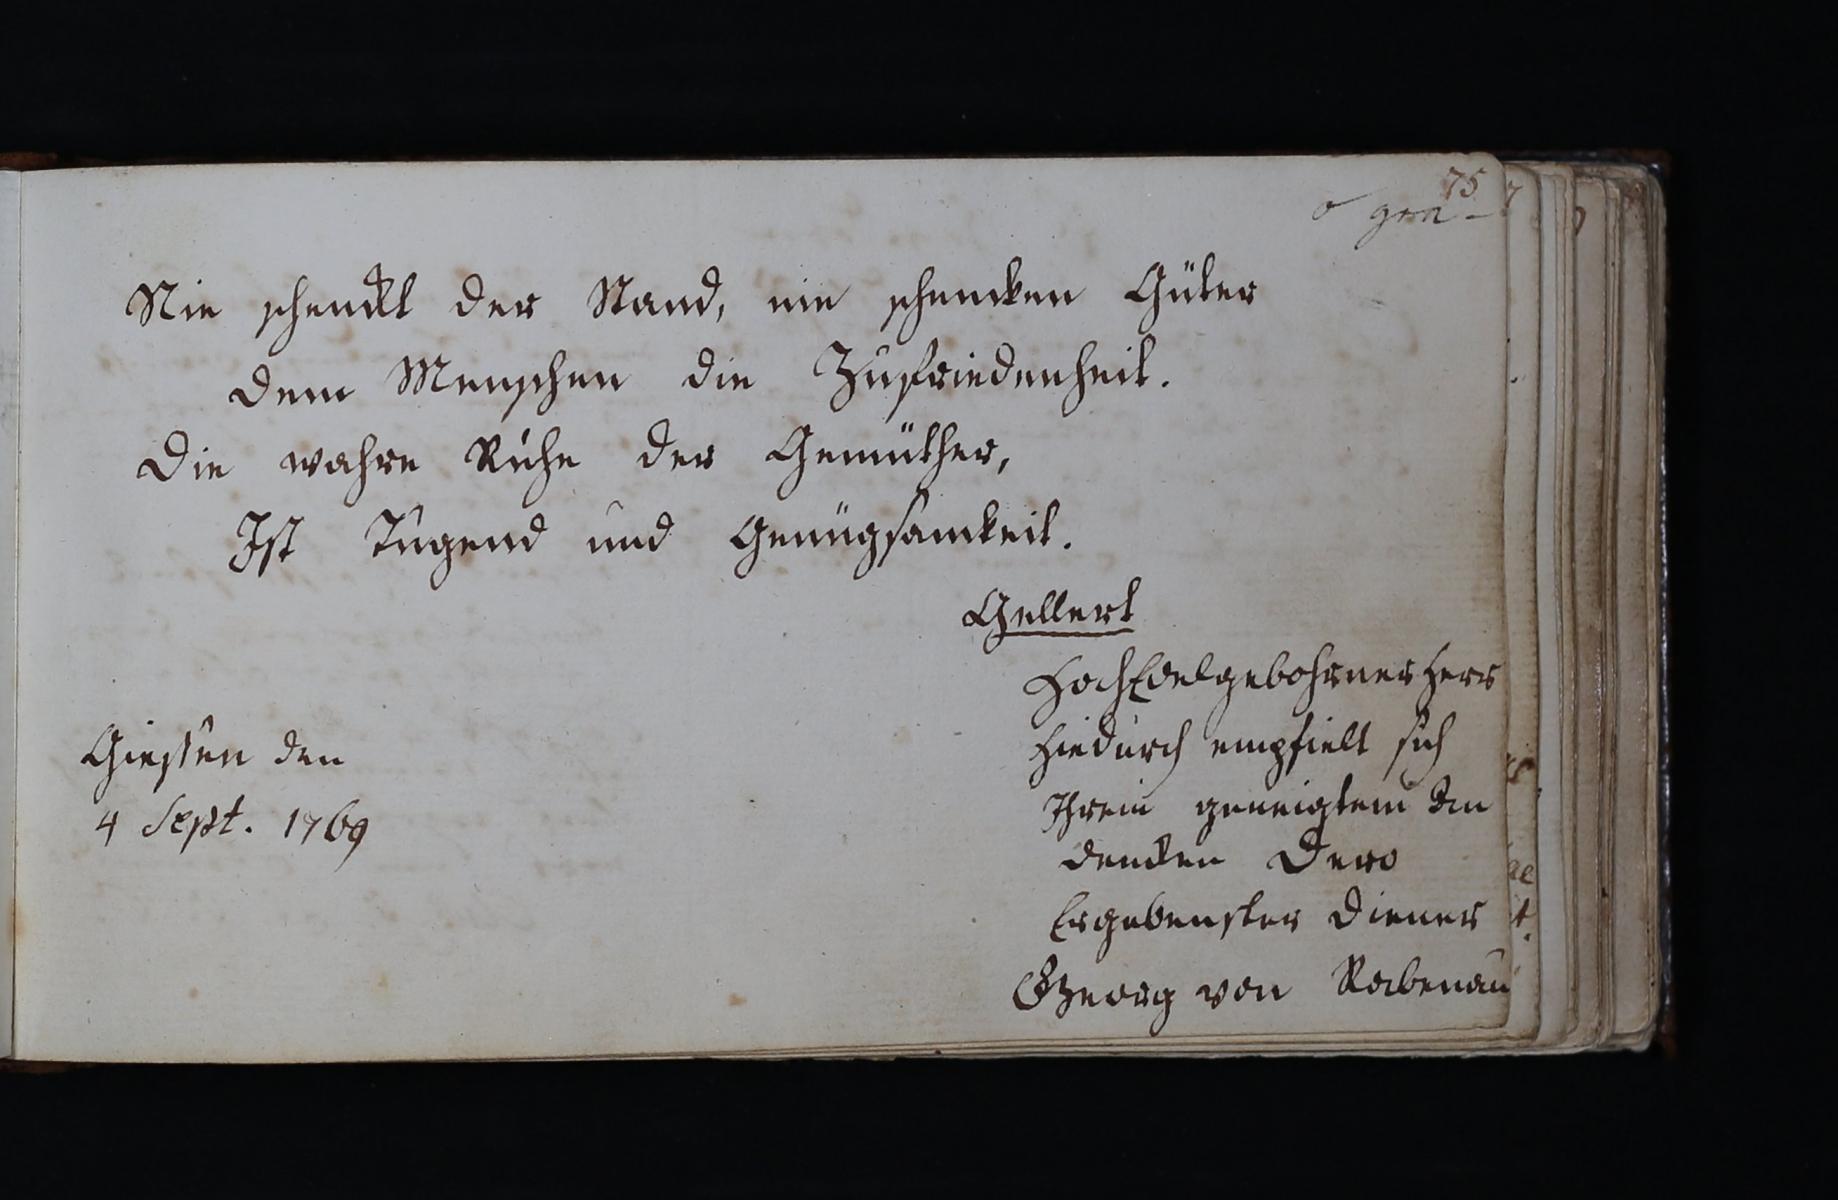 75
Nie schenckt der Stand, nie schencken Güter
dem Menschen die Zufriedenheit.
Die wahre Ruhe der Gemüther,
Ist Tugend und Genügsamkeit.
Gellert
HochEdelgebohrner Herr
Hiedurch empfielt sich
Ihrem geneigtem An
dencken Dero
Ergebenster Diener
George von Rabenau
Giessen den
4 Sept. 1769